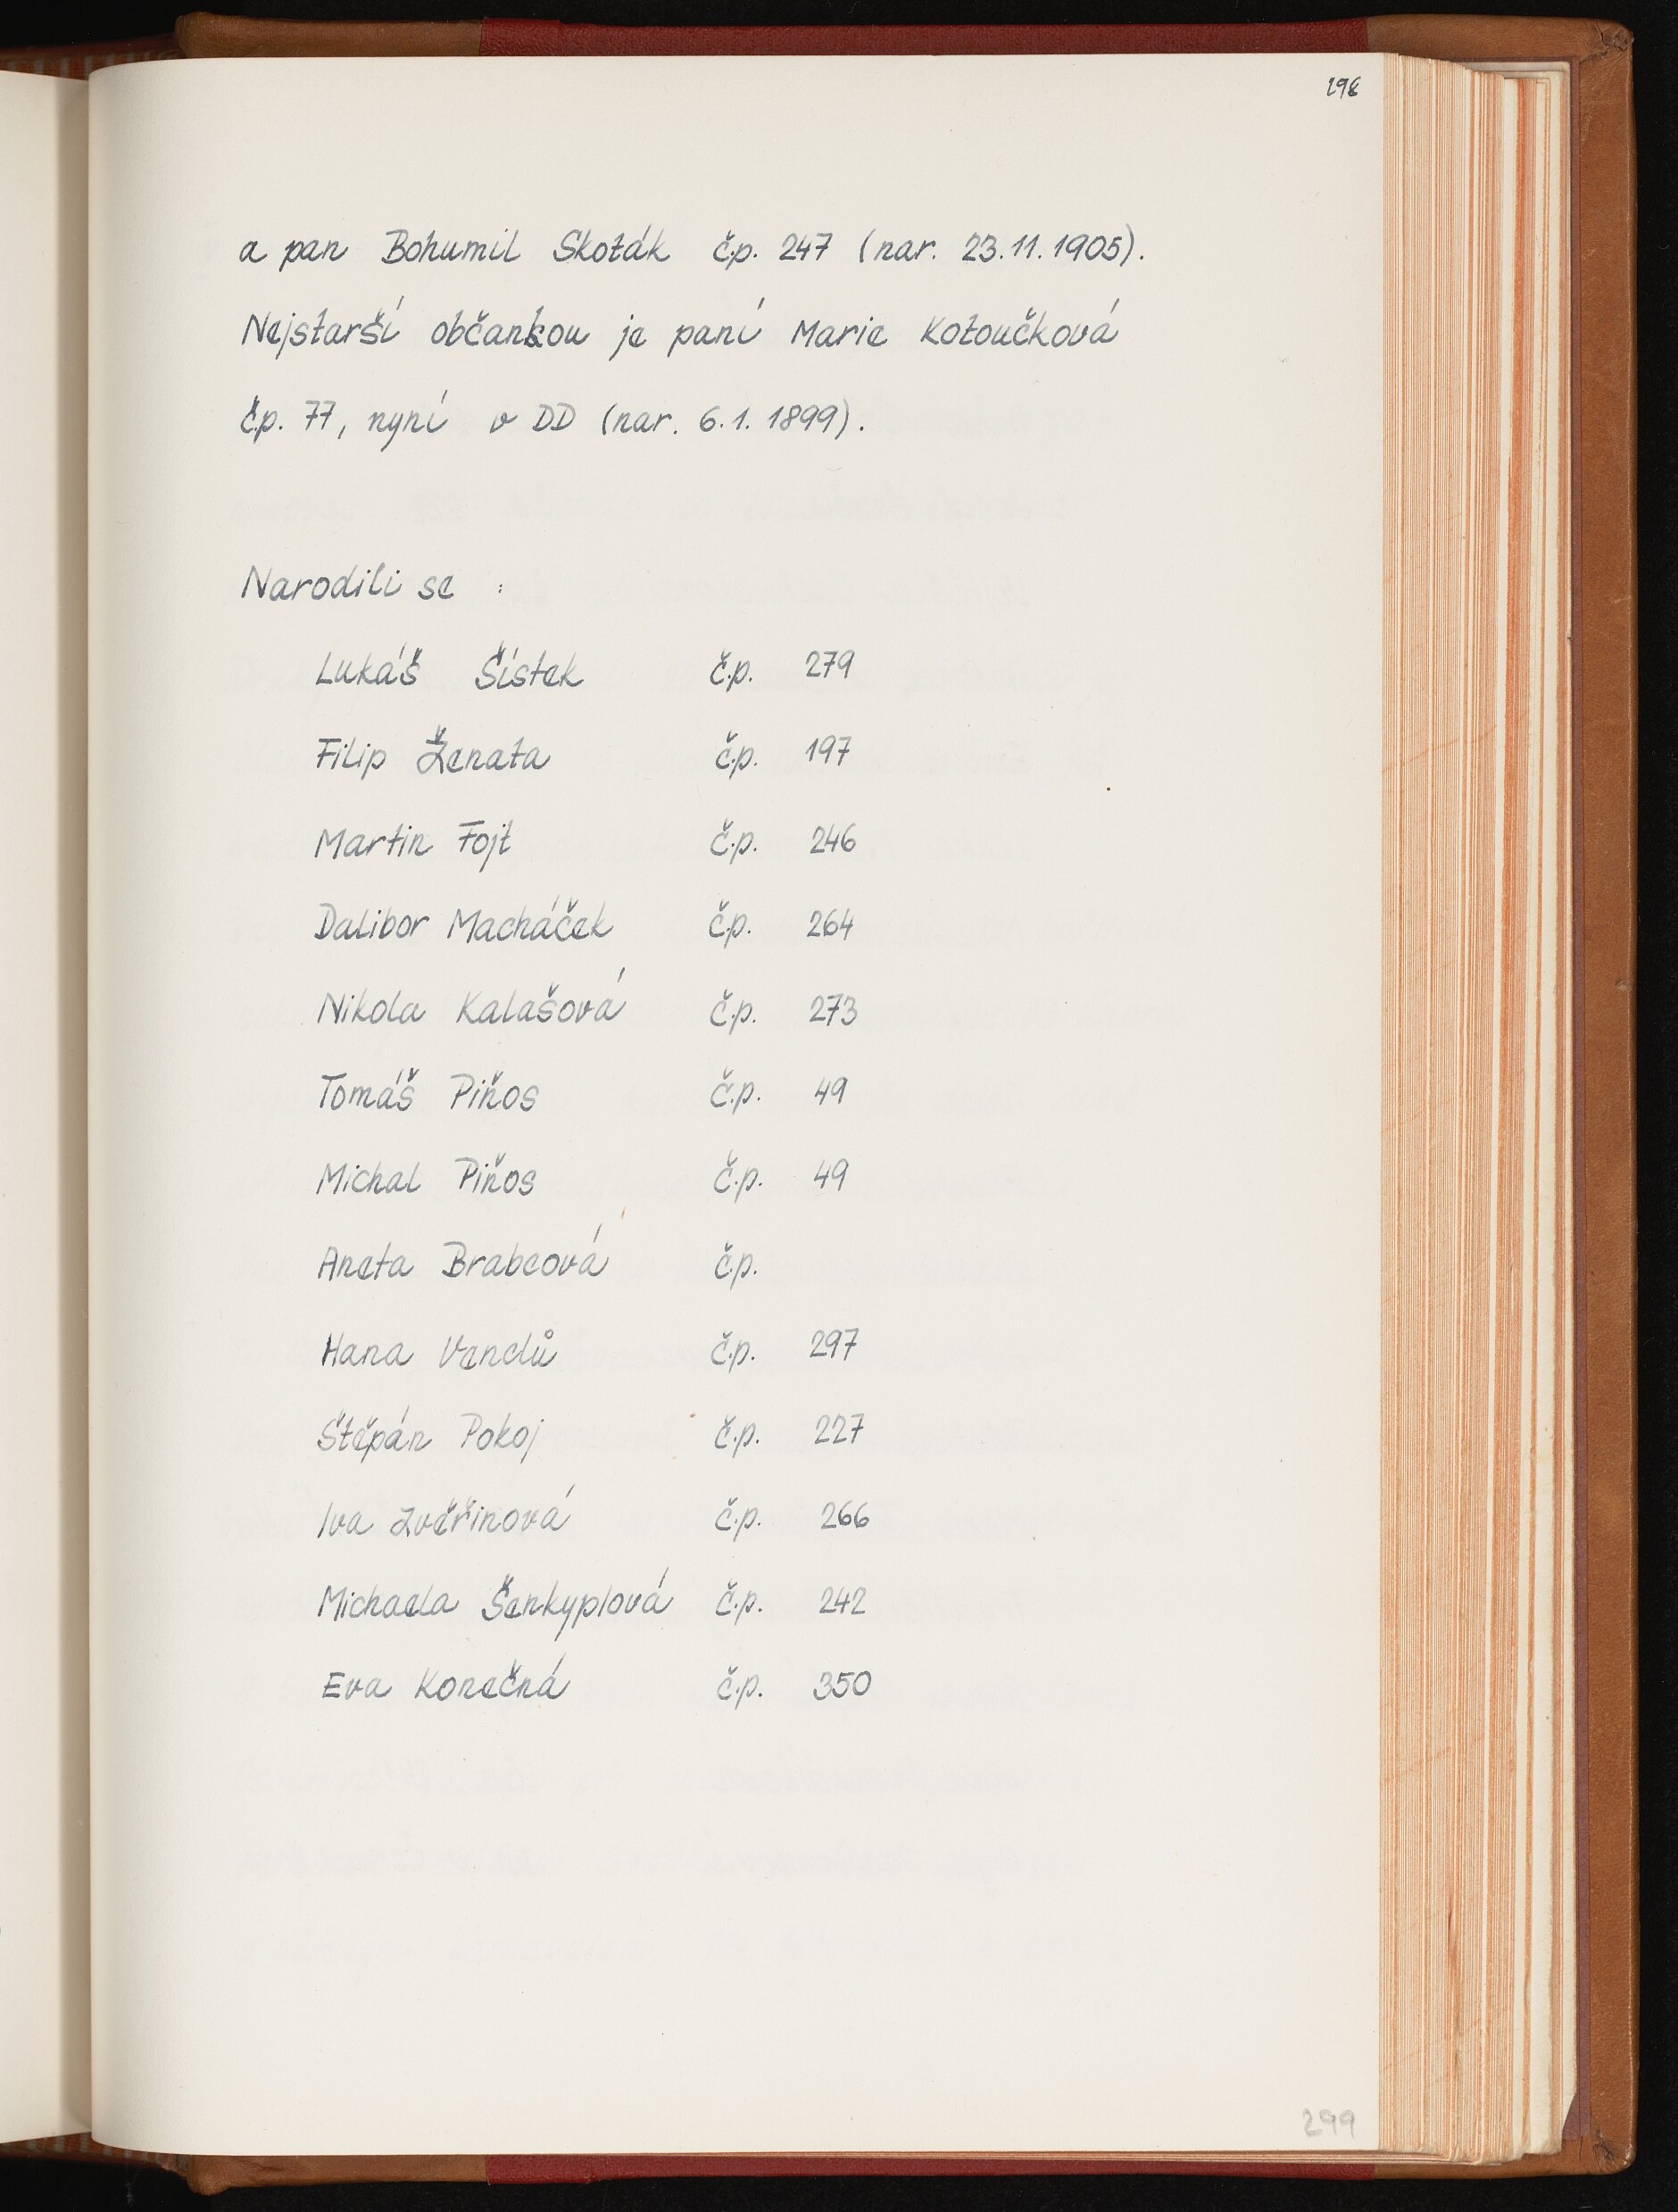 298
a pan Bohumil Skoták č.p. 247 (nar. 23.11.1905).
Nejstarší občankou je paní Marie Kotoučková
č.p. 77, nyní v DD (nar. 6.1.1899).
Narodili se :
Lukáš Šístek č.p. 279
Filip Ženata č.p. 197
Martin Fojt č.p. 246
Dalibor Macháček č.p. 264
Nikola Kalašová č.p. 273
Tomáš Piňos č.p. 49
Michal Piňos č.p. 49
Aneta Brabcová č.p.
Hana Vendů č.p. 297
Štěpán Pokoj č.p. 227
Iva Zvěřinová č.p. 266
Michaela Šenkyplová č.p. 242
Eva Konečná č.p. 350
299